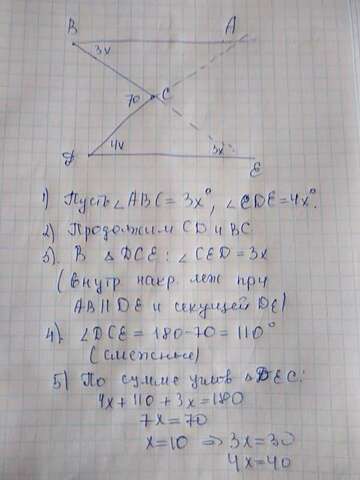 B A
3x
70 C
D 4x 3x
E
1) Пусть ∠ABC = 3x°, ∠CDE = 4x°.
2) Продолжим CD и BC
3). В △DCE: ∠CED = 3x
(внутр. накр. леж при
AB || DE и секущей DE)
4). ∠DCE = 180-70 = 110°
(смежные)
5) По сумме углов △DEC:
4x + 110 + 3x = 180
7x = 70
x = 10 ⇒ 3x = 30
4x = 40